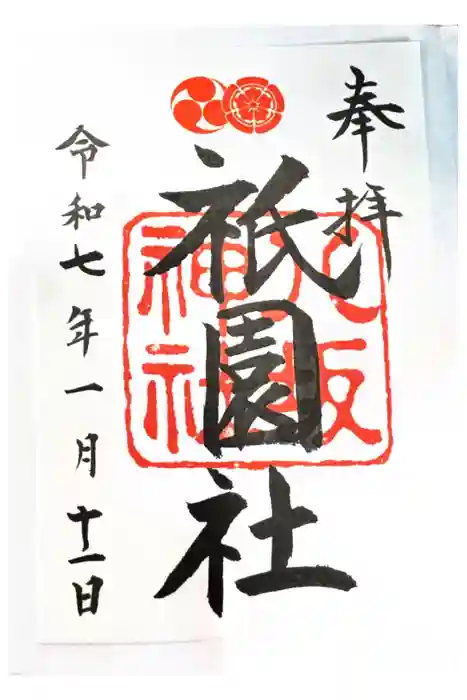 奉拝
祇園社
八坂神社
令和七年一月十一日